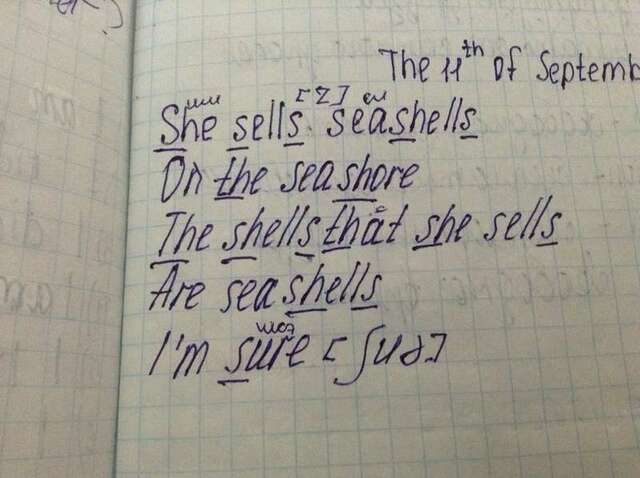 The 11th of Septemb
She sells [z] seashells
On the seashore
The shells that she sells
Are seashells
I'm sure [ʃuə]